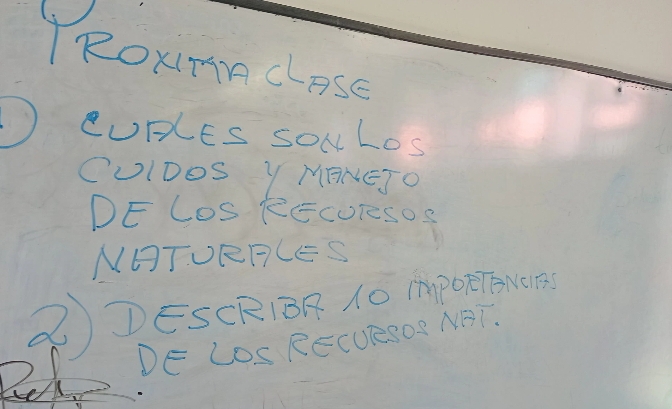 PROXIMA CLASE
1) CUALES SON LOS
CUIDOS Y MANEJO
DE LOS RECURSOS
NATURALES
2) DESCRIBA 10 IMPORTANCIAS
DE LOS RECURSOS NAT.